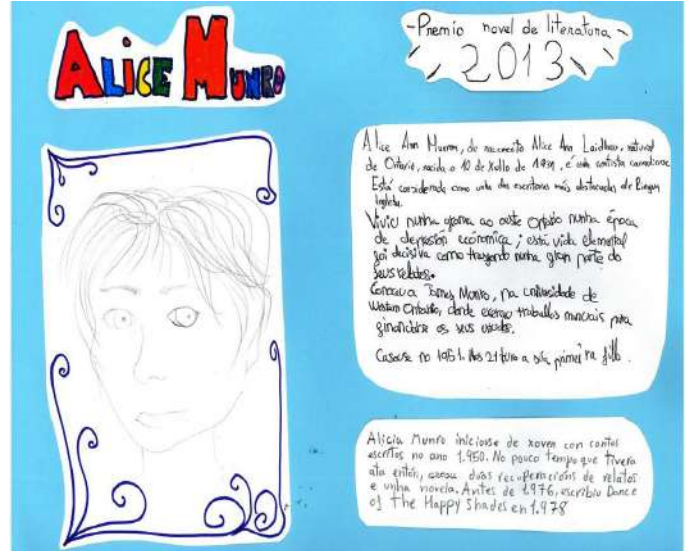 ALICE MUNRO
-Premio novel de literatura-
2013
Alice Ann Munro, de nacemento Alice Ann Laidlaw, natural
de Ontario, nacida o 10 de Xullo de 1931, é unha contista canadiense
Está considerada como unha das escritoras máis destacadas de lingua
inglesa.
Viviu nunha granxa ao oeste Ontario nunha época
de depresión económica; esta vida elemental
foi decisiva como trasfondo nunha gran parte do
seus relatos.
Coñeceu a James Munro, na universidade de
Western Ontario, donde exerceu traballos manuais para
financiarse os seus estudos.
Casouse no 1951. Aos 21 tivo a súa primeira filla.
Alicia Munro iniciouse de xoven con contos
escritos no ano 1.950. No pouco tempo que tivera
ata entón, creou dúas recuperacións de relatos
e unha novela. Antes de 1.976, escribiu Dance
of The Happy Shades en 1.978